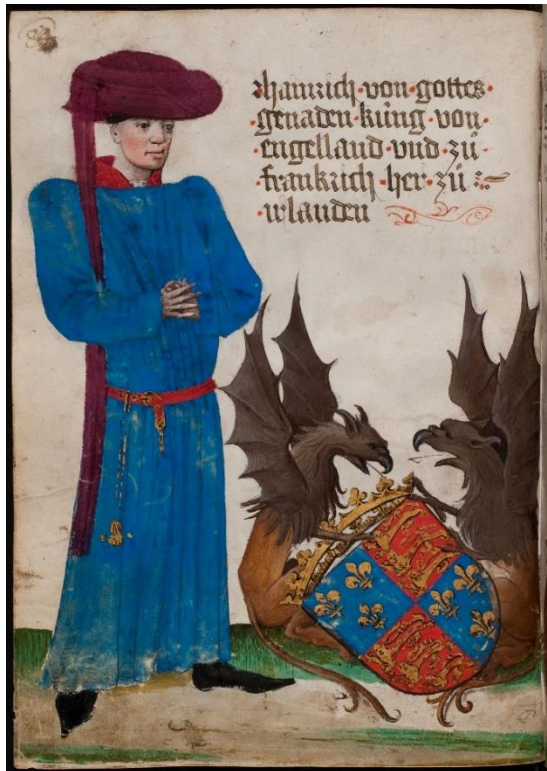 84
hainrich · von · gottes ·
· genaden · küng · von ·
· engelland · vnd · zü ·
· frankrich · her · zü :~
· irlanden